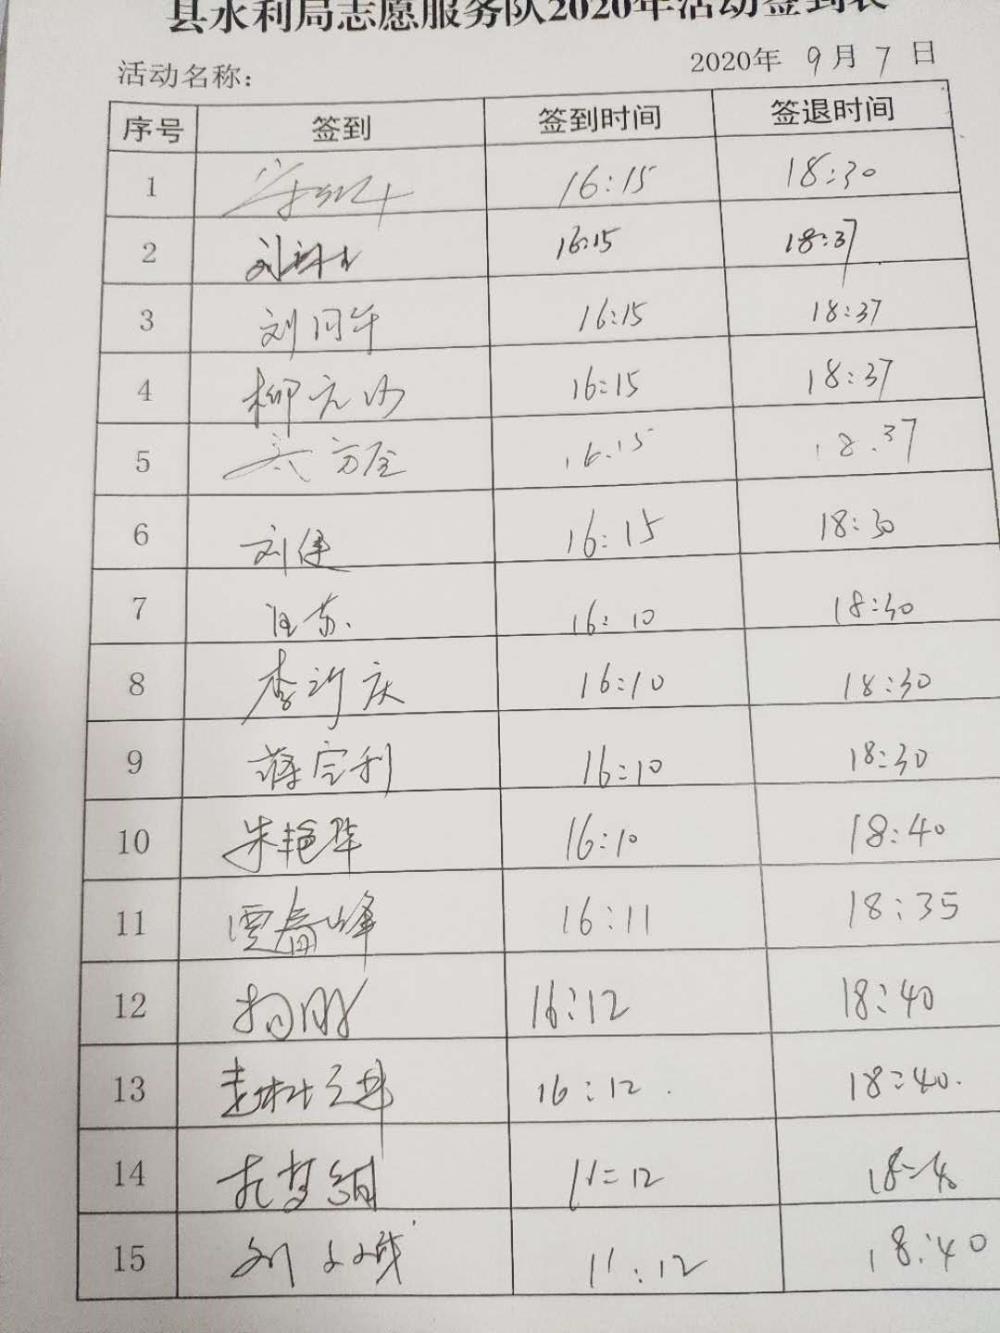 县水利局志愿服务队2020年活动签到表
活动名称: 2020年 9月 7日
序号 签到 签到时间 签退时间
1 16:15 18:30
2 刘 16:15 18:37
3 刘同年 16:15 18:37
4 柳 16:15 18:37
5 16:15 18:37
6 刘建 16:15 18:30
7 汪东 16:10 18:30
8 李 庆 16:10 18:30
9 蒋宝利 16:10 18:30
10 朱艳华 16:10 18:40
11 贾春峰 16:11 18:35
12 杨鹏 16:12 18:40
13 16:12 18:40
14 孔梦娟 11:12
15 刘 11:12 18:40